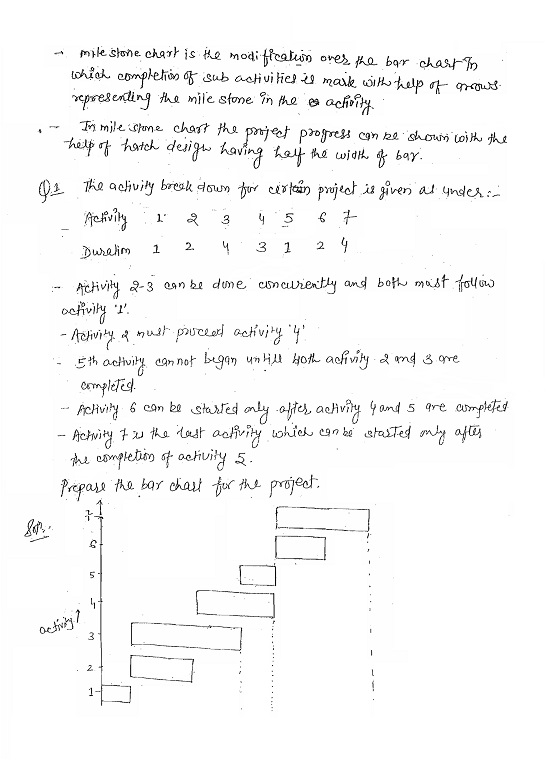 → mile stone chart is the modification over the bar chart in
which completion of sub activities is mark with help of arrows
representing the mile stone in the activity.
- In mile stone chart the project progress can be shown with the
help of hatch design having half the width of bar.
Q.1 The activity break down for certain project is given as under :-
Activity 1 2 3 4 5 6 7
Duration 1 2 4 3 1 2 4
- Activity 2-3 can be done concurrently and both must follow
activity '1'.
- Activity 2 must proceed activity '4'
- 5th activity cannot began untill both activity 2 and 3 are
completed.
- Activity 6 can be started only after activity 4 and 5 are completed
- Activity 7 is the last activity which can be started only after
the completion of activity 5.
Prepare the bar chart for the project.
Soln:-
7
6
5
4
activity ↑
3
2
1